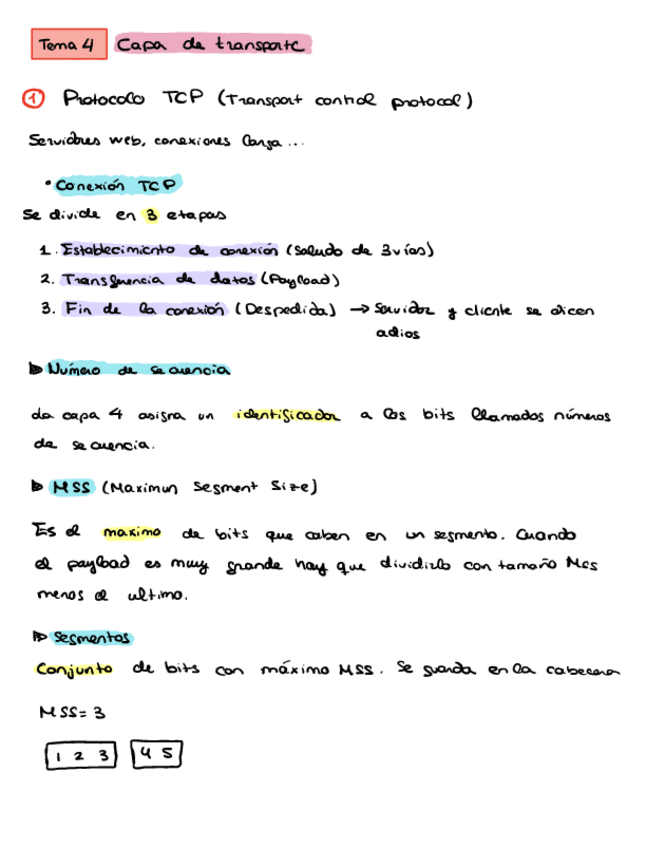 Tema 4 Capa de transporte
1 Protocolo TCP (Transport control protocol)
Servidores web, conexiones larga...
• Conexión TCP
Se divide en 3 etapas
1. Establecimiento de conexión (Saludo de 3 vías)
2. Transferencia de datos (Payload)
3. Fin de la conexión (Despedida) → Servidor y cliente se dicen
adios
Número de secuencia
La capa 4 asigna un identificador a los bits llamados números
de secuencia.
MSS (Maximun Segment Size)
Es el maximo de bits que caben en un segmento. Cuando
el payload es muy grande hay que dividirlo con tamaño Mss
menos el ultimo.
Segmentos
Conjunto de bits con máximo MSS. Se guarda en la cabecera
MSS = 3
1 2 3 4 5